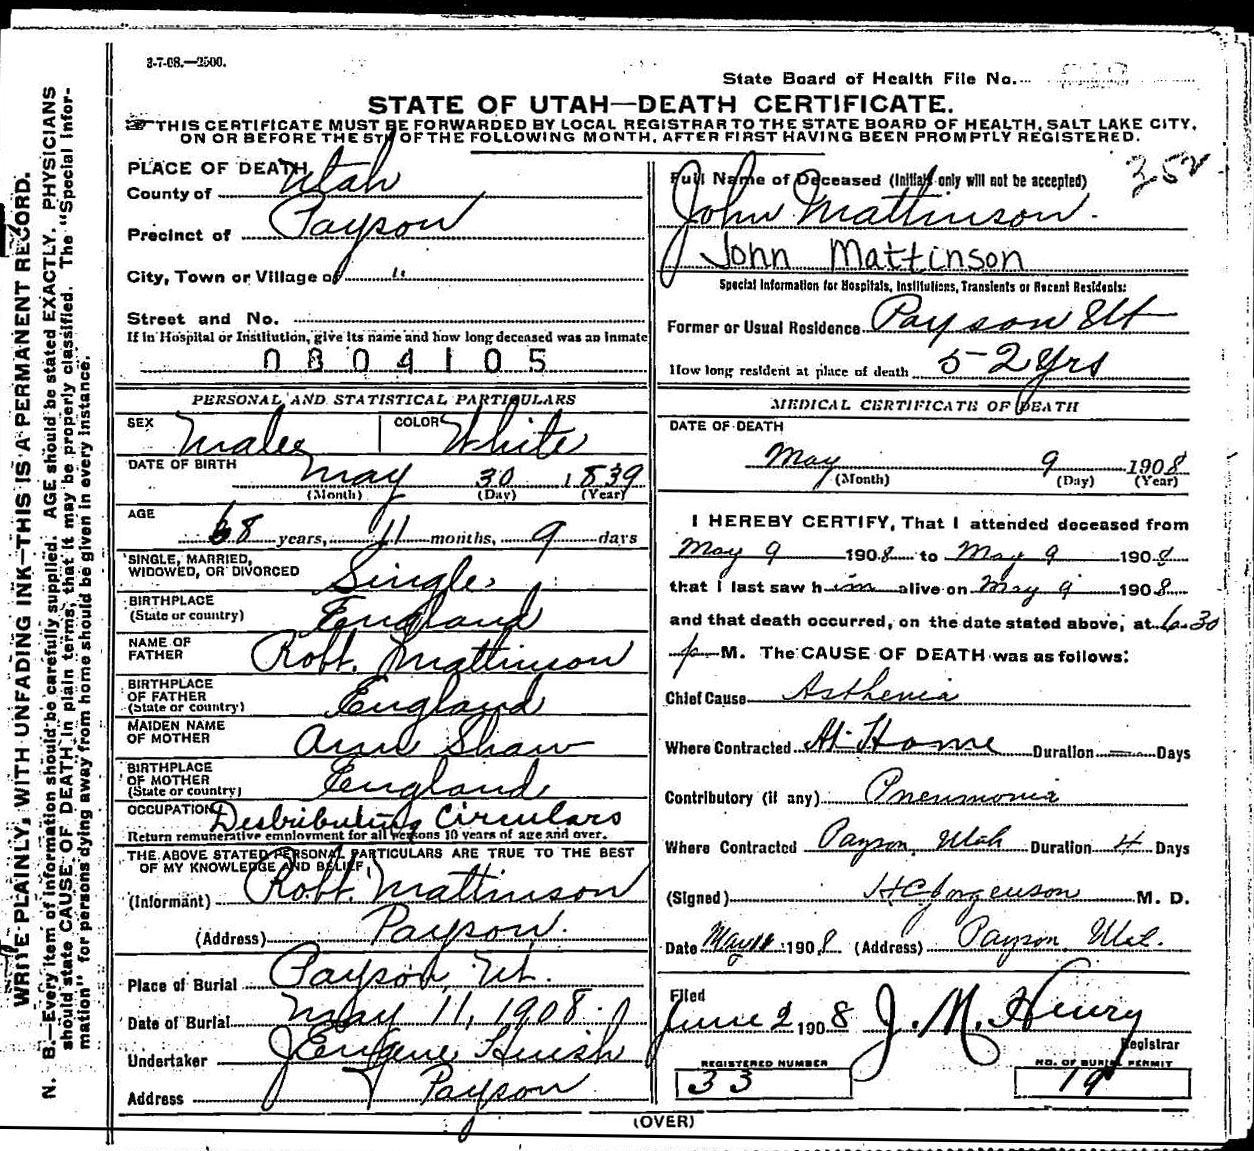 3-7-08.—2500.
State Board of Health File No.
STATE OF UTAH—DEATH CERTIFICATE.
THIS CERTIFICATE MUST BE FORWARDED BY LOCAL REGISTRAR TO THE STATE BOARD OF HEALTH, SALT LAKE CITY,
ON OR BEFORE THE 5TH OF THE FOLLOWING MONTH, AFTER FIRST HAVING BEEN PROMPTLY REGISTERED.
PLACE OF DEATH
County of Utah
Precinct of Payson
City, Town or Village of "
Street and No.
If in Hospital or Institution, give its name and how long deceased was an inmate
0804105
PERSONAL AND STATISTICAL PARTICULARS
SEX Male COLOR White
DATE OF BIRTH May 30 1839
(Month) (Day) (Year)
AGE
68 years, 11 months, 9 days
SINGLE, MARRIED,
WIDOWED, OR DIVORCED Single
BIRTHPLACE
(State or country) England
NAME OF
FATHER Robt. Mattinson
BIRTHPLACE
OF FATHER
(State or country) England
MAIDEN NAME
OF MOTHER Ann Shaw
BIRTHPLACE
OF MOTHER
(State or country) England
OCCUPATION Destributing Circulars
Return remunerative employment for all persons 10 years of age and over.
THE ABOVE STATED PERSONAL PARTICULARS ARE TRUE TO THE BEST
OF MY KNOWLEDGE AND BELIEF,
(Informant) Robt. Mattinson
(Address) Payson.
Place of Burial Payson, Ut.
Date of Burial May 11, 1908.
Undertaker J Eugene Huish
Address Payson
352
Full Name of Deceased (Initials only will not be accepted)
John Mattinson.
John Mattinson
Special Information for Hospitals, Institutions, Transients or Recent Residents:
Former or Usual Residence Payson Ut
How long resident at place of death 52 yrs
MEDICAL CERTIFICATE OF DEATH
DATE OF DEATH
May 9 1908
(Month) (Day) (Year)
I HEREBY CERTIFY, That I attended deceased from
May 9 1908 to May 9 1908
that I last saw him alive on May 9 1908
and that death occurred, on the date stated above, at 6.30
p M. The CAUSE OF DEATH was as follows:
Chief Cause Asthenia
Where Contracted At Home Duration — Days
Contributory (if any) Pneumonia
Where Contracted Payson, Utah Duration 4 Days
(Signed) H C Jorgenson M. D.
Date May 1908 (Address) Payson, Utah.
Filed
June 2 1908 J. M. Henry
Registrar
REGISTERED NUMBER
33
NO. OF BURIAL PERMIT
19
(OVER)
WRITE PLAINLY, WITH UNFADING INK—THIS IS A PERMANENT RECORD.
N. B.—Every item of information should be carefully supplied. AGE should be stated EXACTLY. PHYSICIANS
should state CAUSE OF DEATH in plain terms, that it may be properly classified. The "Special Infor-
mation" for persons dying away from home should be given in every instance.